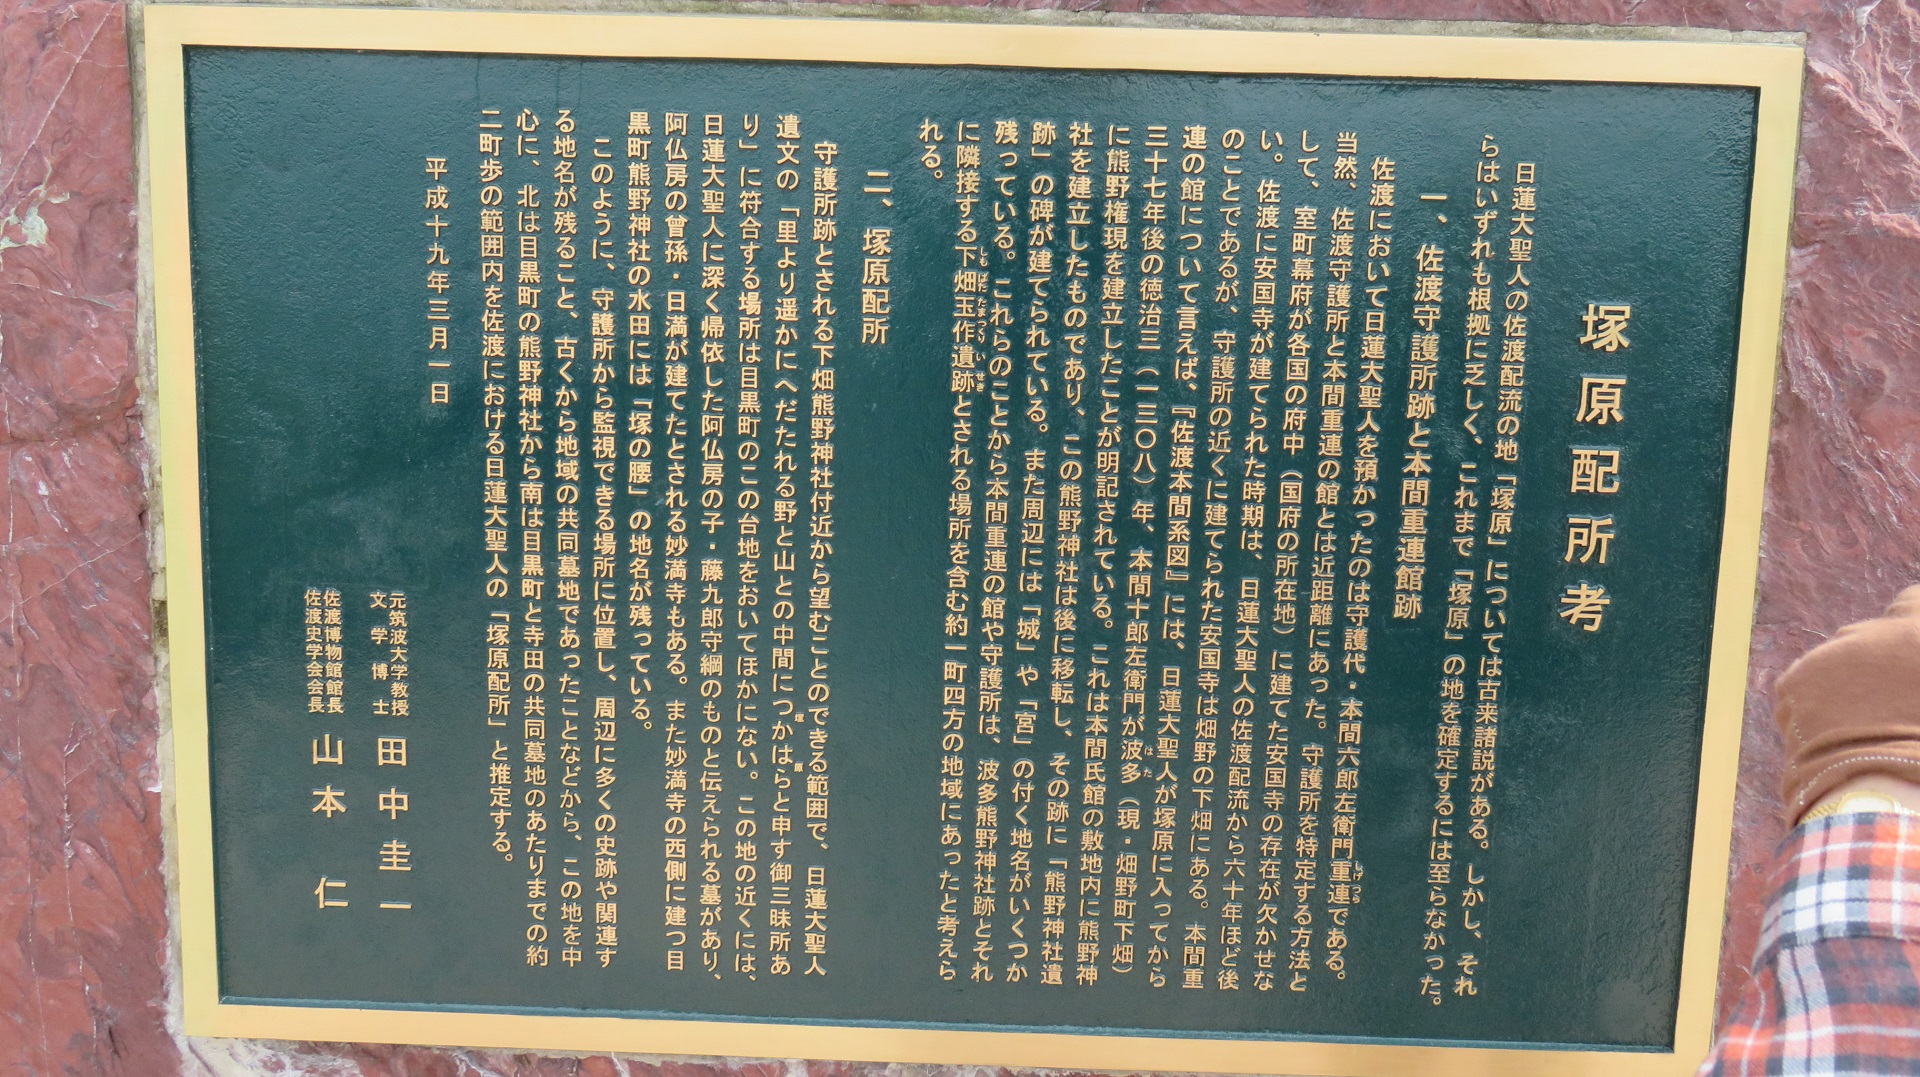 塚原配所考
日蓮大聖人の佐渡配流の地「塚原」については古来諸説がある。しかし、それ
らはいずれも根拠に乏しく、これまで「塚原」の地を確定するには至らなかった。
一、佐渡守護所跡と本間重連館跡
佐渡において日蓮大聖人を預かったのは守護代・本間六郎左衛門重連しげつらである。
当然、佐渡守護所と本間重連の館とは近距離にあった。守護所を特定する方法と
して、室町幕府が各国の府中（国府の所在地）に建てた安国寺の存在が欠かせな
い。佐渡に安国寺が建てられた時期は、日蓮大聖人の佐渡配流から六十年ほど後
のことであるが、守護所の近くに建てられた安国寺は畑野の下畑にある。本間重
連の館について言えば、『佐渡本間系図』には、日蓮大聖人が塚原に入ってから
三十七年後の徳治三（一三〇八）年、本間十郎左衛門が波多はた（現・畑野町下畑）
に熊野権現を建立したことが明記されている。これは本間氏館の敷地内に熊野神
社を建立したものであり、この熊野神社は後に移転し、その跡に「熊野神社遺
跡」の碑が建てられている。また周辺には「城」や「宮」の付く地名がいくつか
残っている。これらのことから本間重連の館や守護所は、波多熊野神社跡とそれ
に隣接する下畑玉作遺跡しもばたたまつくりいせきとされる場所を含む約一町四方の地域にあったと考えら
れる。
二、塚原配所
守護所跡とされる下畑熊野神社付近から望むことのできる範囲で、日蓮大聖人
遺文の「里より遥かにへだたれる野と山との中間につかはら塚原と申す御三昧所あ
り」に符合する場所は目黒町のこの台地をおいてほかにない。この地の近くには、
日蓮大聖人に深く帰依した阿仏房の子・藤九郎守綱のものと伝えられる墓があり、
阿仏房の曾孫・日満が建てたとされる妙満寺もある。また妙満寺の西側に建つ目
黒町熊野神社の水田には「塚の腰」の地名が残っている。
このように、守護所から監視できる場所に位置し、周辺に多くの史跡や関連す
る地名が残ること、古くから地域の共同墓地であったことなどから、この地を中
心に、北は目黒町の熊野神社から南は目黒町と寺田の共同墓地のあたりまでの約
二町歩の範囲内を佐渡における日蓮大聖人の「塚原配所」と推定する。
平成十九年三月一日
元筑波大学教授
文学博士
田中圭一
佐渡博物館館長
佐渡史学会会長
山本仁